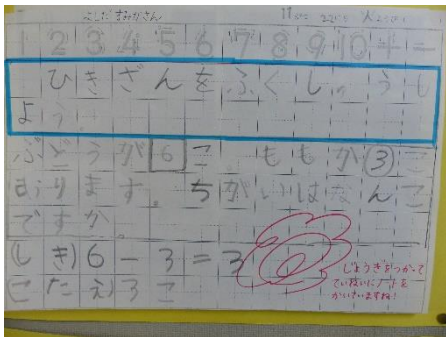 11がつ 22にち 火ようび
1 2 3 4 5 6 7 8 9 10 + -
ひきざんをふくしゅうし
よう
ぶどうが6こ ももが③こ
あります。ちがいはなんこ
ですか。
(しき) 6 - 3 = 3
(こたえ) 3こ
じょうぎをつかって
てい教いにノートを
かいていますね!